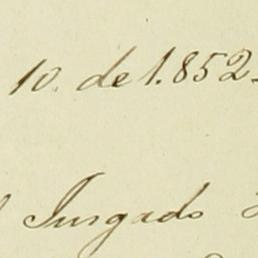 10. de 1.852-
Jusgado